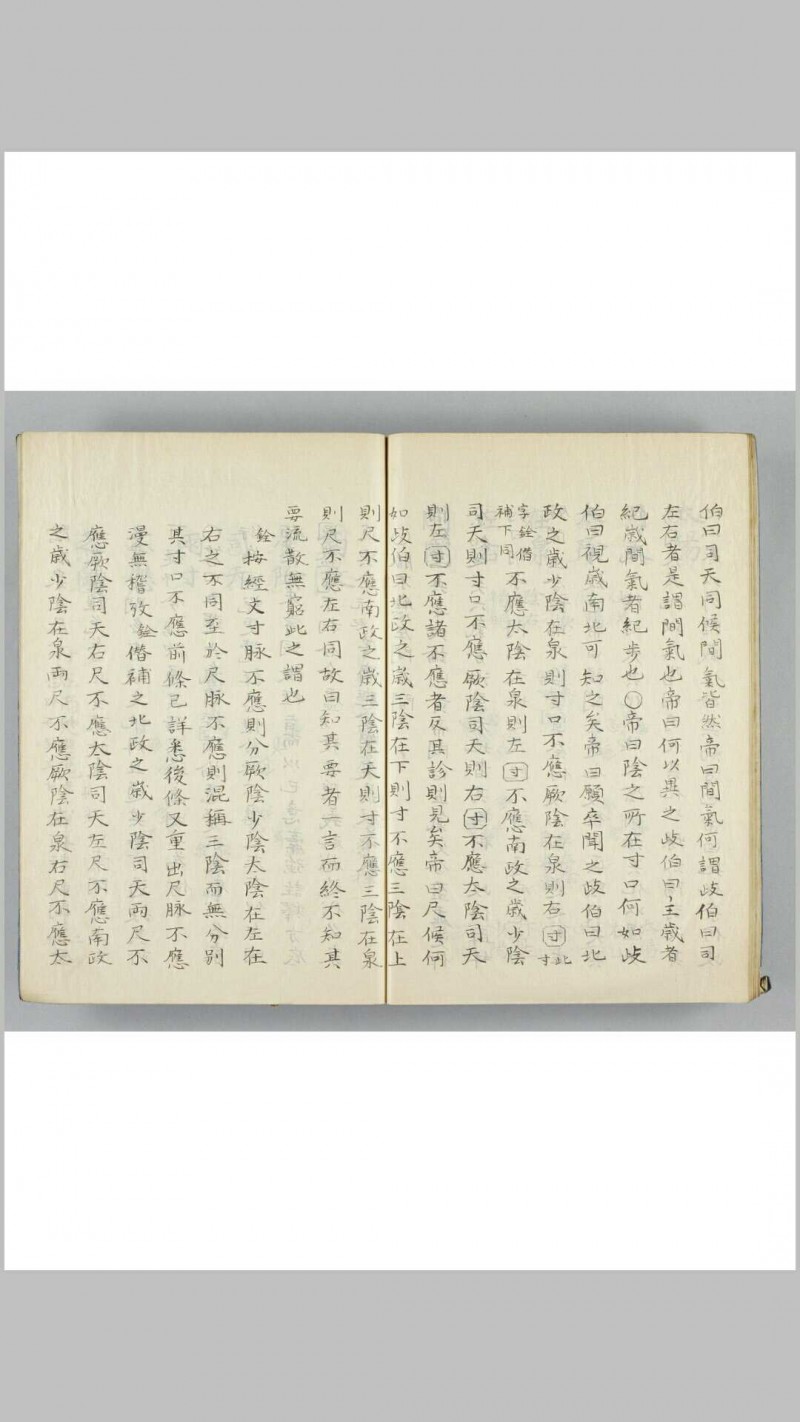 伯曰司天同候間氣皆然帝曰間氣何謂歧伯曰司
左右者是謂間氣也帝曰何以異之歧伯曰主歲者
紀歲間氣者紀步也〇帝曰陰之所在寸口何如歧
伯曰視歲南北可知之矣帝曰願卒聞之歧伯曰北
政之歲少陰在泉則寸口不應厥陰在泉則右寸此寸
字銓僭補下同不應太陰在泉則左寸不應南政之歲少陰
司天則寸口不應厥陰司天則右寸不應太陰司天
則左寸不應諸不應者反其診則見矣帝曰尺候何
如歧伯曰北政之歲三陰在下則寸不應三陰在上
則尺不應南政之歲三陰在天則寸不應三陰在泉
則尺不應左右同故曰知其要者一言而終不知其
要流散無窮此之謂也
銓按經文寸脉不應則分厥陰少陰太陰在左在
右之不同至於尺脉不應則混稱三陰而無分別
其寸口不應前條已詳悉後條又重出尺脉不應
漫無稽攷銓僭補之北政之歲少陰司天兩尺不
應厥陰司天右尺不應太陰司天左尺不應南政
之歲少陰在泉兩尺不應厥陰在泉右尺不應太